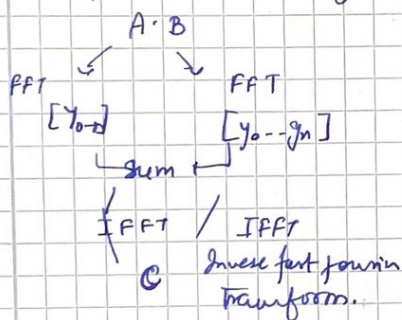 A · B
FFT FFT
[y₀→n] [y₀--yₙ]
Sum
IFFT / IFFT
C Inverse fast fourier
Transform.